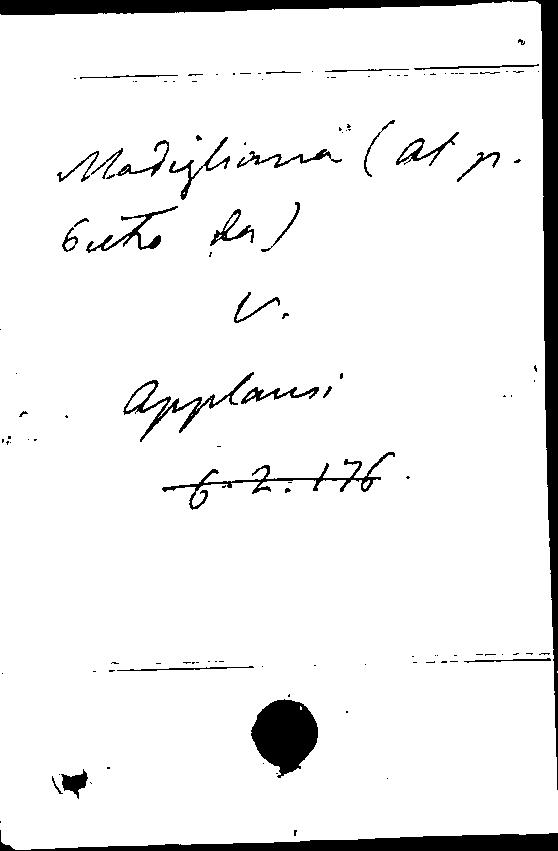 Modigliana (At p.
Gietro da)
V.
Applausi
6.2.176.